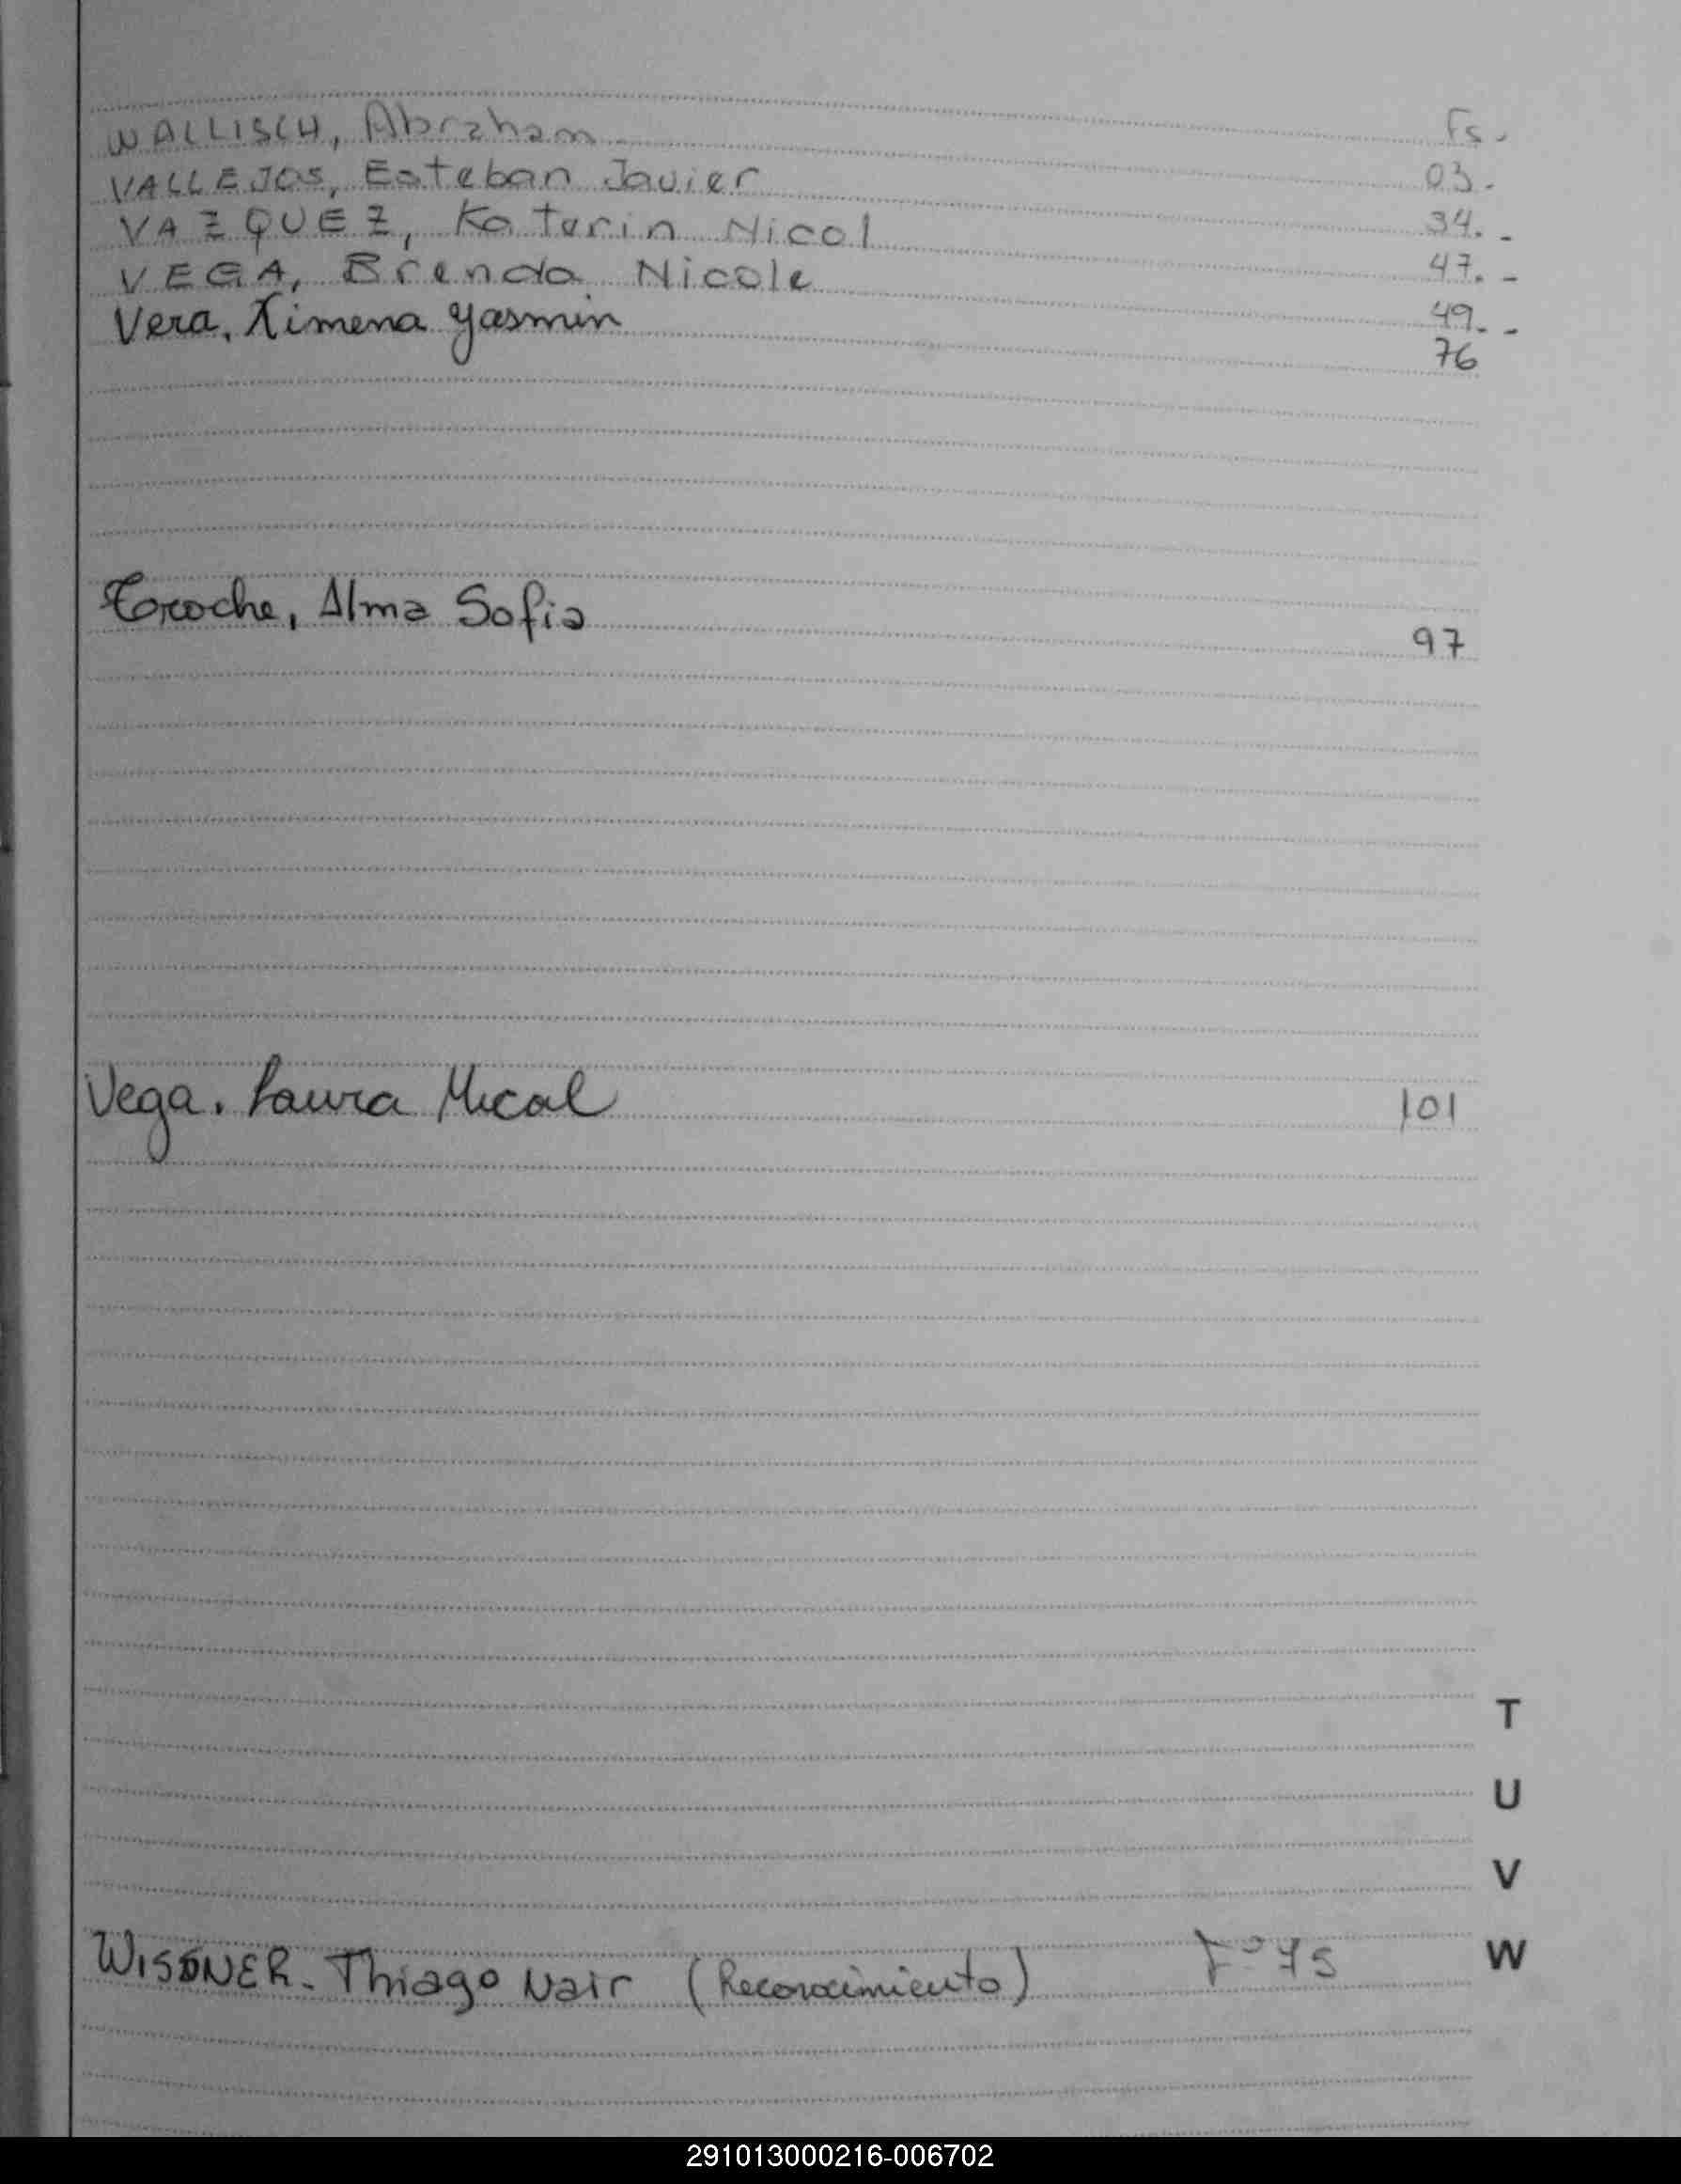 Fs.
WALLISCH, Abraham 03.
VALLEJOS, Esteban Javier 34.-
VAZQUEZ, Katerin Nicol 47.-
VEGA, Brenda Nicole 49.-
Vera, Ximena Yasmin 76
Toroche, Alma Sofia 97
Vega. Laura Mical 101
T
U
V
W
WISSNER. Thiago Nair (Reconocimiento) Fº 75
291013000216-006702